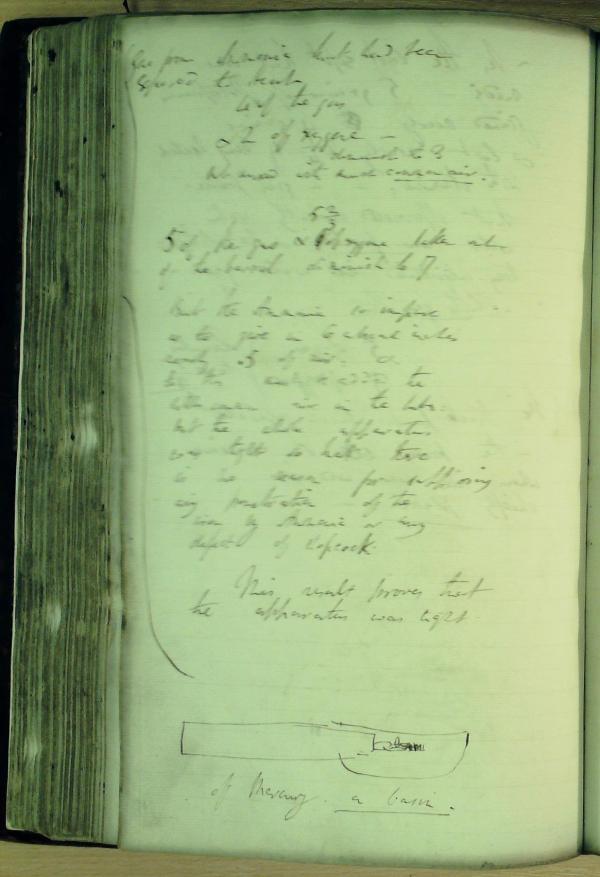 Gas from Ammonia that had been
exposed to heat
6 of the gas
& 2 of oxygene —
diminish to
was mixed with much common air.
5 2/3
5 of the gas & of oxygene taken
of the barrel diminish to 7.
But the Ammonia so impure
as to give in 6 cubical inches
nearly .5 of air. &
to this must be added the
common air in the tube.
but the whole apparatus
was tight so that there
is no reason for suffering
any penetration of the
iron by Ammonia or any
defect of stopcock.
This result proves that
the apparatus was tight.
of Mercury. a basin.